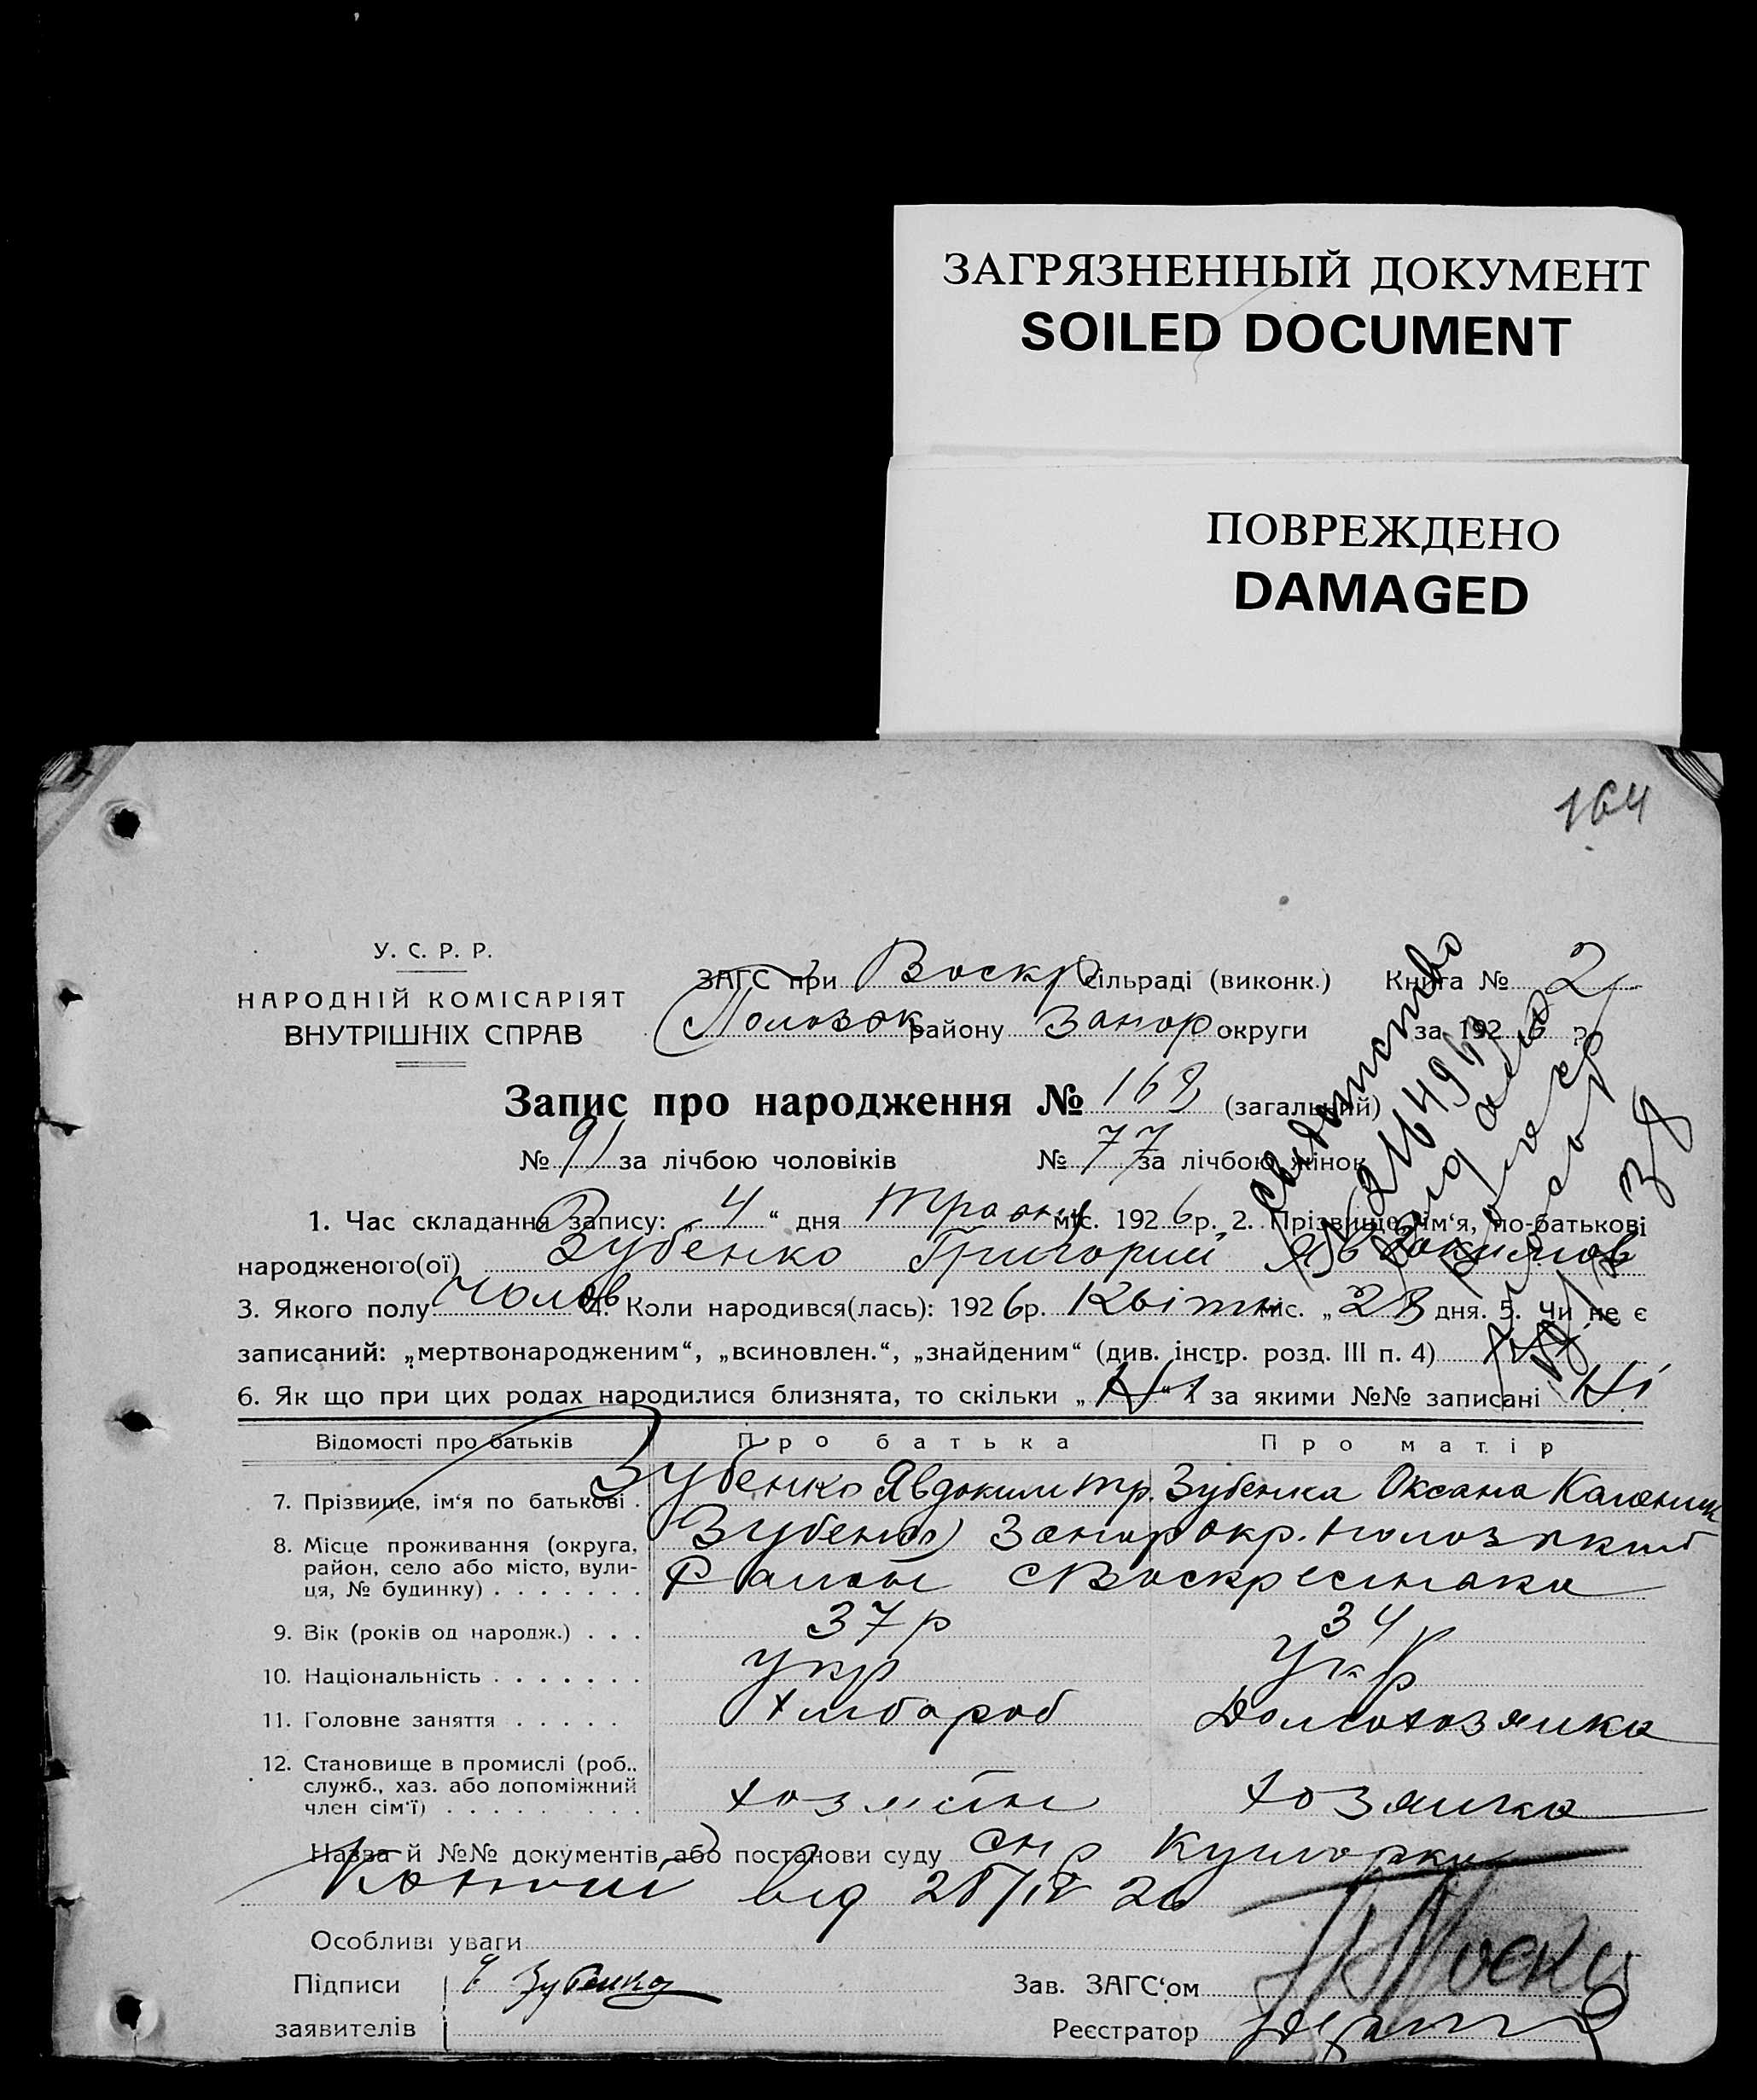 ЗАГРЯЗНЕННЫЙ ДОКУМЕНТ
SOILED DOCUMENT
ПОВРЕЖДЕНО
DAMAGED
164
У. С. Р. Р.
НАРОДНІЙ КОМІСАРІЯТ
ВНУТРІШНІХ СПРАВ
ЗАГС при Воскр сільраді (виконк.) Книга № 2
Полозьк району Запор округи за 1926 р.
Запис про народження № 168 (загальний)
№ 91 за лічбою чоловіків № 77 за лічбою жінок
1. Час складання запису: „4“ дня Травня міс. 1926 р. 2. Прізвище, ім‘я, по-батькові
народженого(ої) Зубенко Григорий Явдокимов
3. Якого полу Чолов 4. Коли народився(лась): 1926 р. Квітн міс. „28 дня. 5. Чи не є
записаний: „мертвонародженим“, „всиновлен.“, „знайденим“ (див. інстр. розд. III п. 4)
6. Як що при цих родах народилися близнята, то скільки „ “ за якими №№ записані Ні
Свидетельство
№ 216493
Відомості про батьків Про батька Про матір
7. Прізвище, ім‘я по батькові . Зубенко Явдоким Тр. Зубенка Оксана
8. Місце проживання (округа, район, село або місто, вулиця, № будинку) . . . . . . . Запор окр. Полозький
Район с Воскресенька
9. Вік (років од народж.) . . . 37 р 34 р
10. Національність . . . . . . . Укр Укр
11. Головне заняття . . . . . Хлібороб Домохозяика
12. Становище в промислі (роб., служб., хаз. або допоміжний член сім‘ї) . . . . . . . . . хозяїн хозяика
Назва й №№ документів або постанови суду
від 28/IV 26
Особливі уваги
Підписи Зубенко
заявителів
Зав. ЗАГС‘ом
Реєстратор